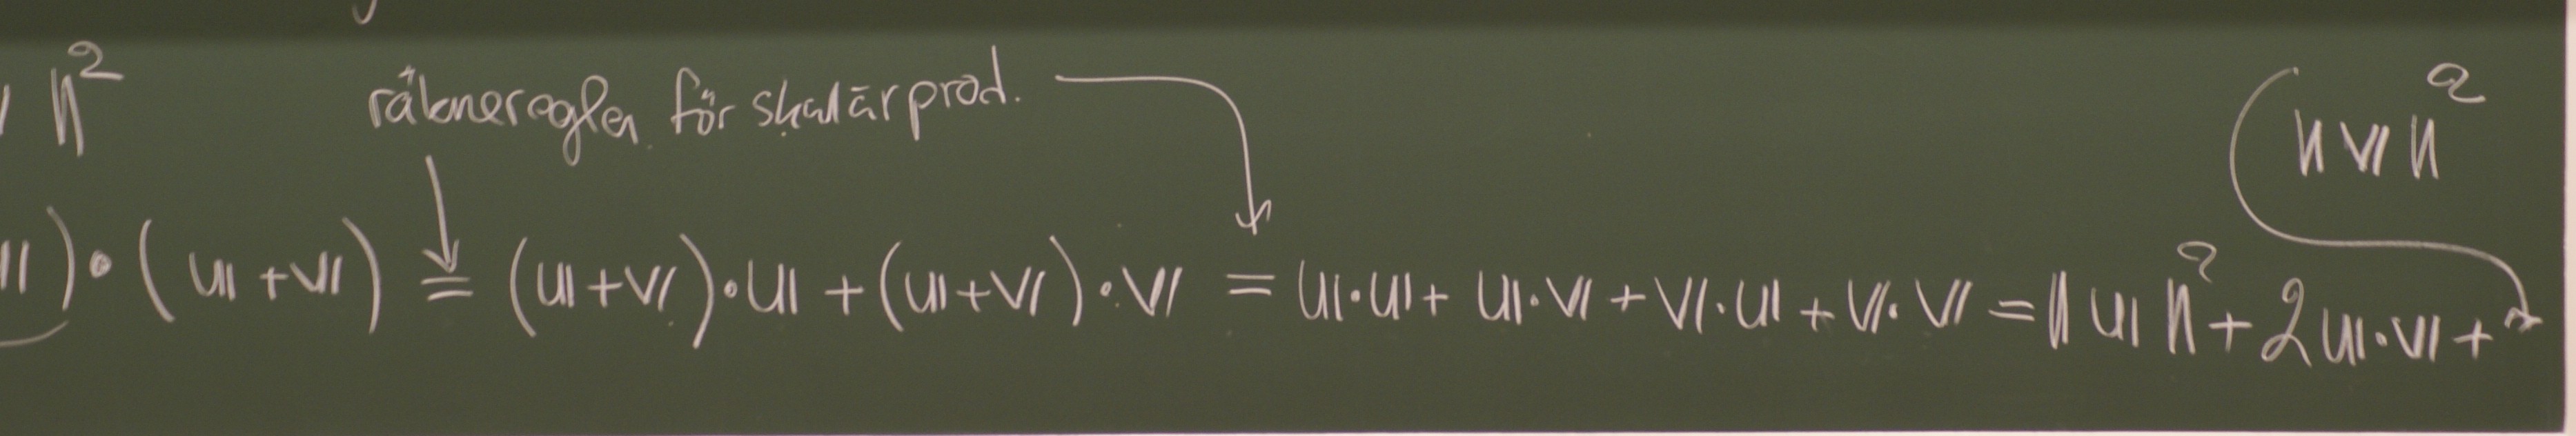 ‖² räkneregler för skalärprod. ‖𝕧‖²
)•(𝕦+𝕧) = (𝕦+𝕧)•𝕦 + (𝕦+𝕧)•𝕧 = 𝕦•𝕦 + 𝕦•𝕧 + 𝕧•𝕦 + 𝕧•𝕧 = ‖𝕦‖² + 2𝕦•𝕧 +